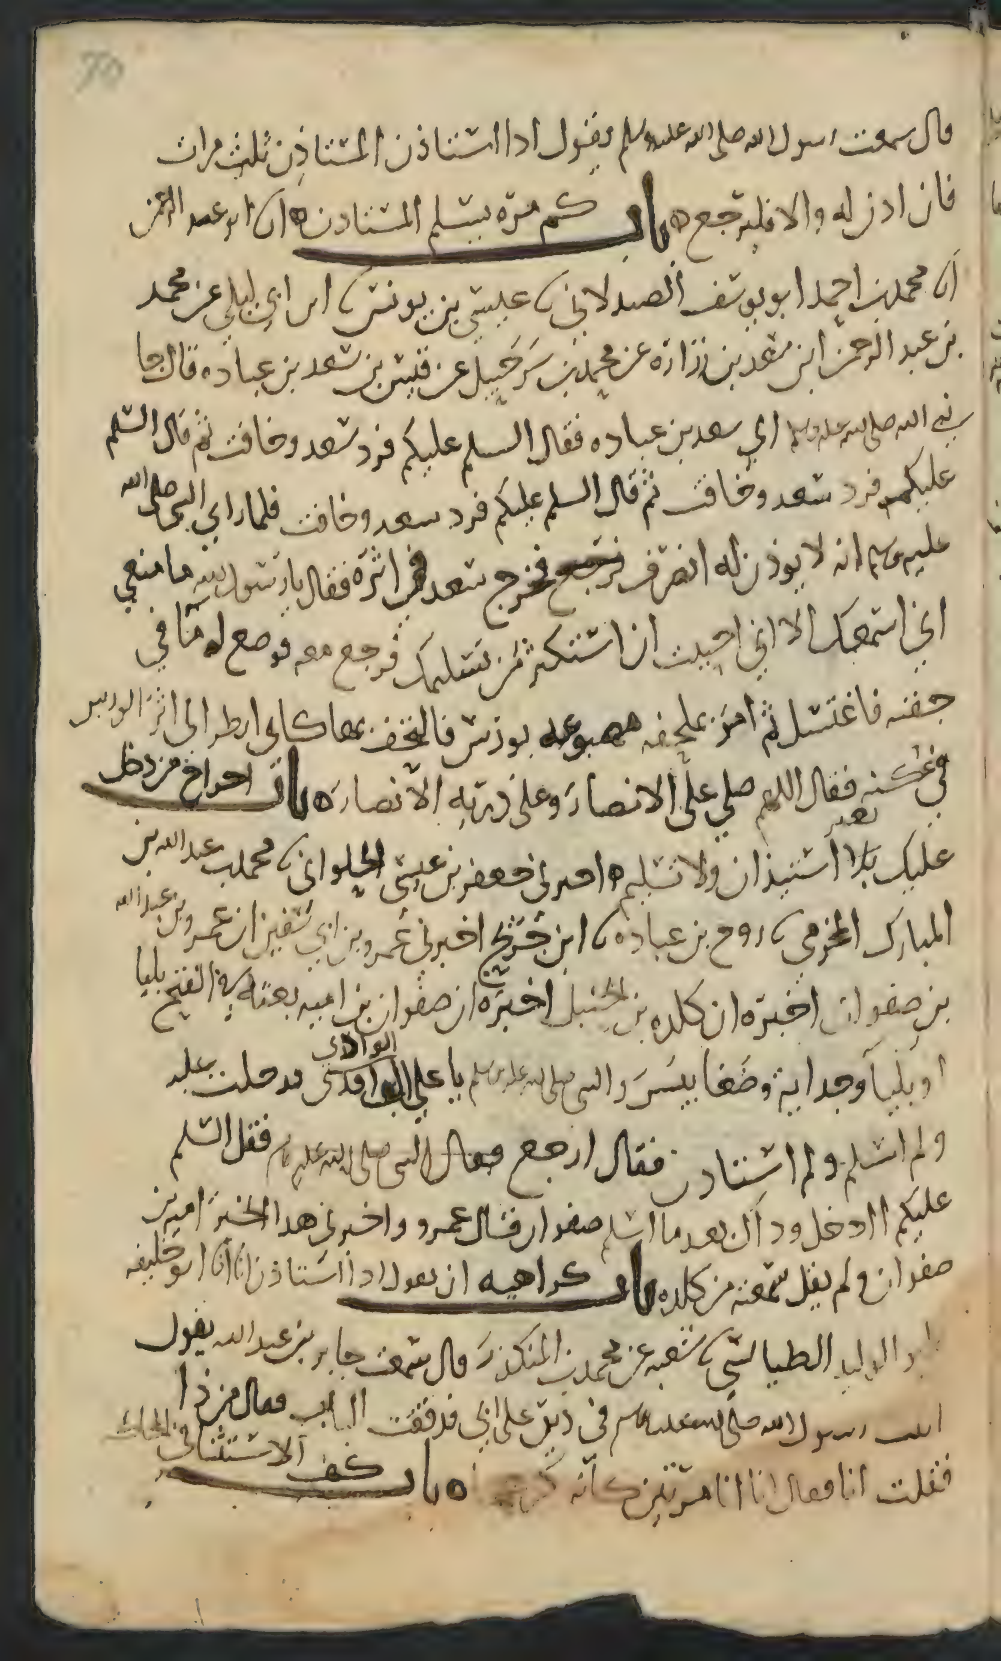 70
قال سمعت رسول الله صلى الله عليه وسلم يقول اذا استاذن المستاذن ثلث مرات
فان اذن له والا فليرجع ه باب كم مره يسلم المستاذن ه انا ابو عبد الرحمن
انا محمد بن احمد ابو يوسف الصيدلاني نا عيسى بن يونس نا ابن ابي ليلى عن محمد
بن عبد الرحمن ابن سعد بن زراره عن محمد بن شرحبيل عن قيس بن سعد بن عباده قال جا
نبي الله صلى الله عليه وسلم الى سعد بن عباده فقال السلم عليكم فرد سعد وخافت ثم قال السلم
عليكم فرد سعد وخافت ثم قال السلم عليكم فرد سعد وخافت فلما راى النبي صلى الله
عليه وسلم انه لا يوذن له انصرف فخرج سعد في اثره فقال يا رسول الله ما منعني
اني اسمعك الا اني احببت ان استكثر من تسليمك فرجع معه فوضع له ما في
جفنه فاغتسل ثم امر بملحفه مصبوغه بورس فالتحف بها كاني انظر الى اثر الورس
في عكنه فقال اللهم صلي على الانصار وعلى ذريه الانصار ه باب اخراج من دخل
عليك بلا استيذان ولا تسليم ه اخبرني جعفر بن عيسى الحلواني نا محمد بن عبد الله بن
المبارك المخرمي نا روح بن عباده نا ابن جريج اخبرني عمرو بن ابي سفين ان عمرو بن عبد الله
بن صفوان اخبره ان كلده بن الحنبل اخبره ان صفوان بن اميه بعثه في الفتح بلبا
او بلبا وجدايه وضغابيس والنبي صلى الله عليه وسلم باعلى الوادي قد دخلت عليه
ولم اسلم ولم استاذن فقال ارجع فقال النبي صلى الله عليه وسلم فقل السلم
عليكم اادخل وذاك بعد ما اسلم صفوان قال عمرو واخبرني هذا الخبر اميه بن
صفوان ولم يقل سمعته من كلده باب كراهيه ان يقول اذا استاذن انا انا ابو خليفه
ابو الوليد الطيالسي نا شعبه عن محمد بن المنكدر قال سمعت جابر بن عبد الله يقول
اتيت رسول الله صلى الله عليه وسلم في دين على ابي فدققت الباب فقال من ذا
فقلت انا فقال انا انا مرتين كانه كره ه باب كيف الاستئناف